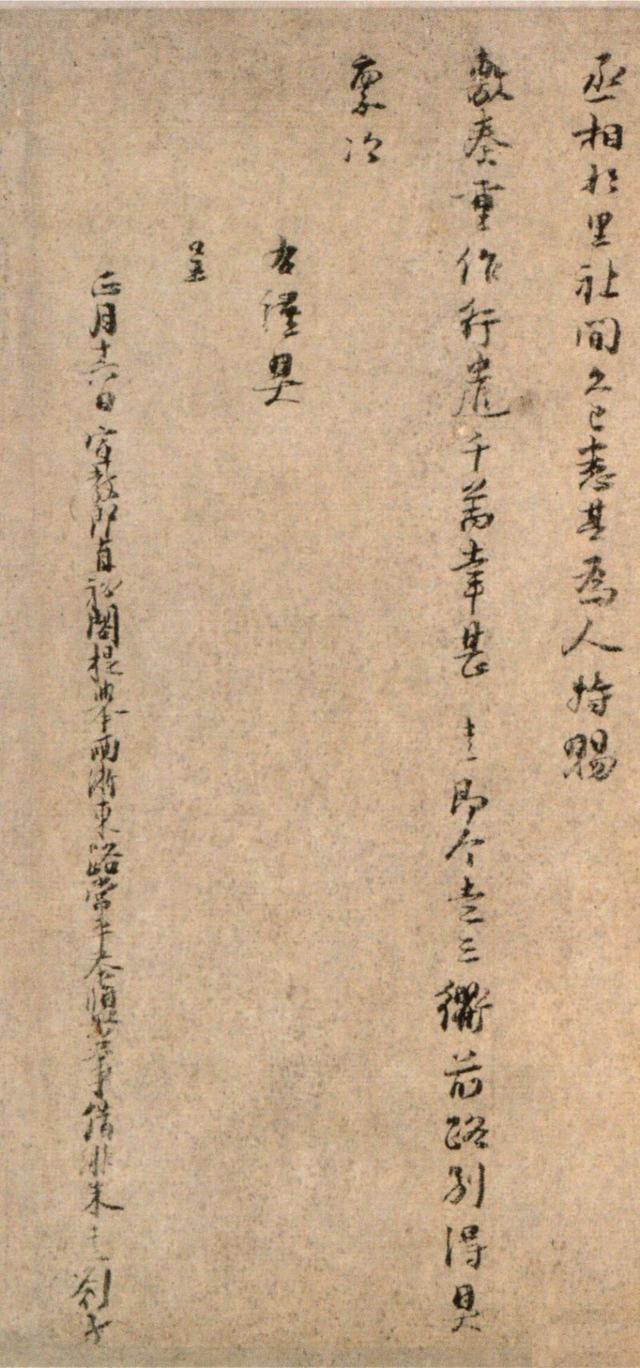 丞相於里社間久已悉其為人特賜
敷奏重作行遣千萬幸甚 熹即今走三衢前路別得具
稟次
右謹具
呈
正月十六日宣教郎直祕閣提舉兩浙東路常平茶鹽公事借緋朱熹劄子